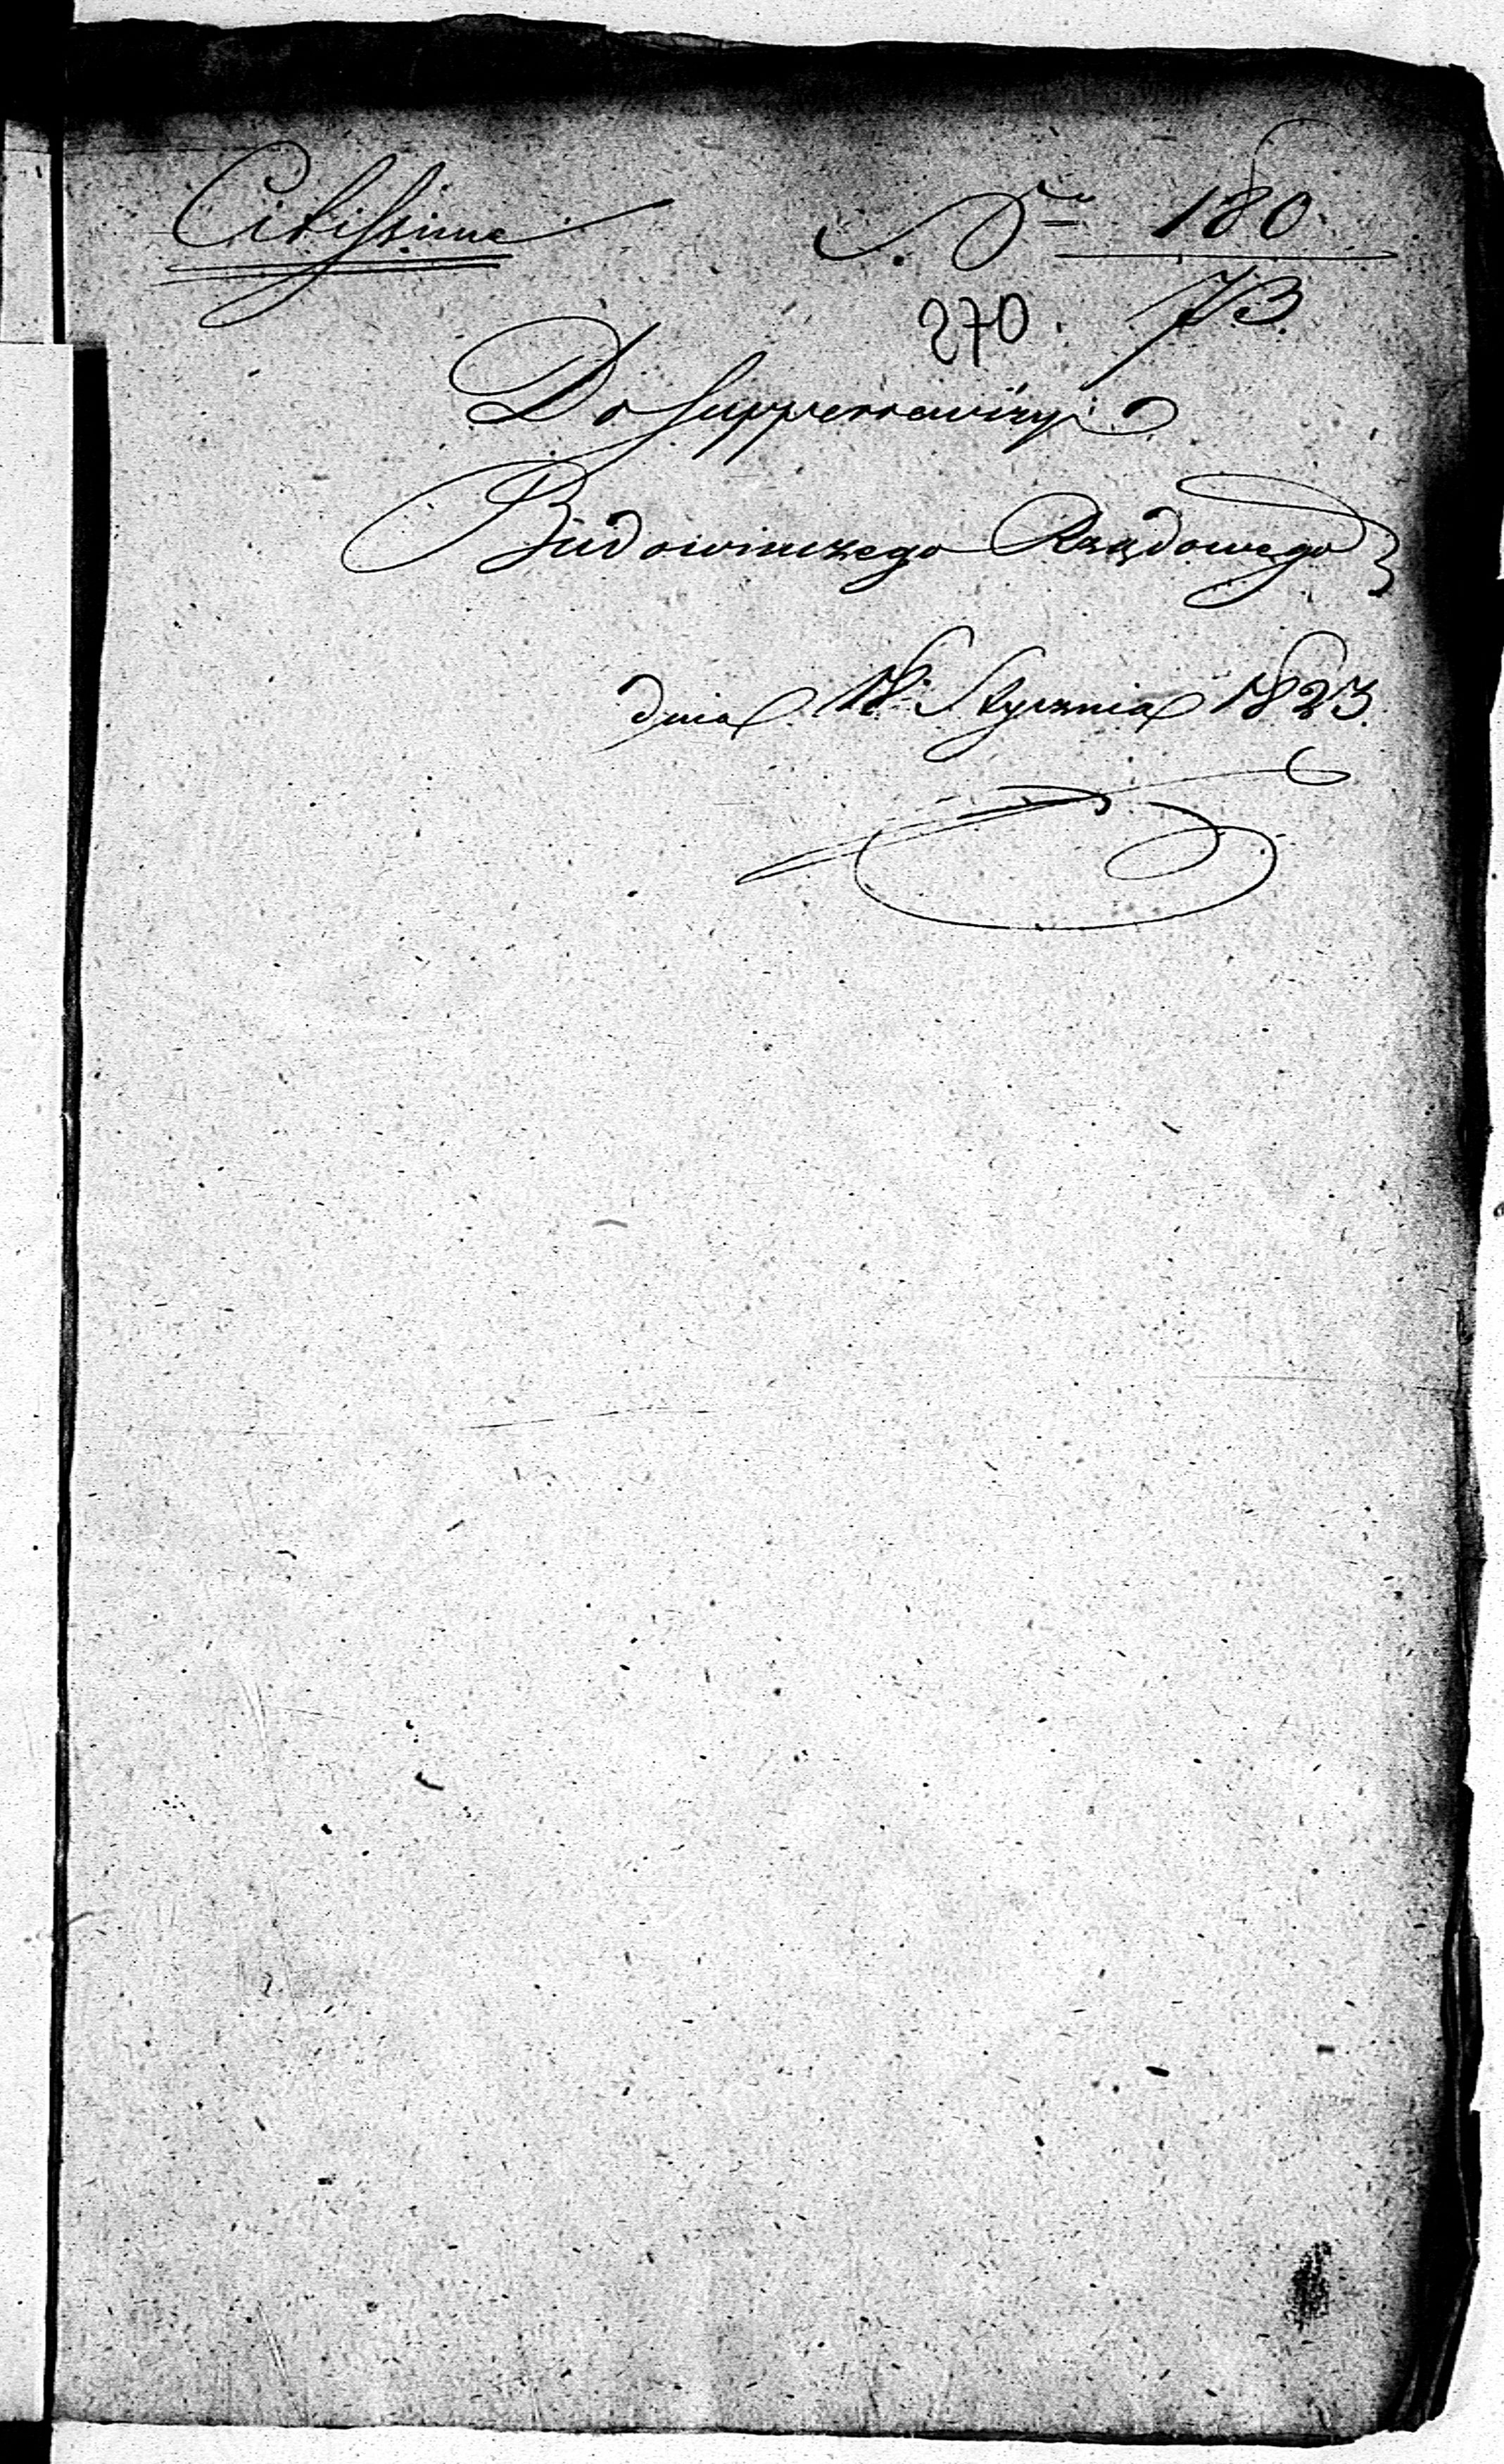 Citissime N. 180
270. 73.
Do Supperrewizyi
Budowniczego Rządowego
dnia 18 Stycznia 1823.